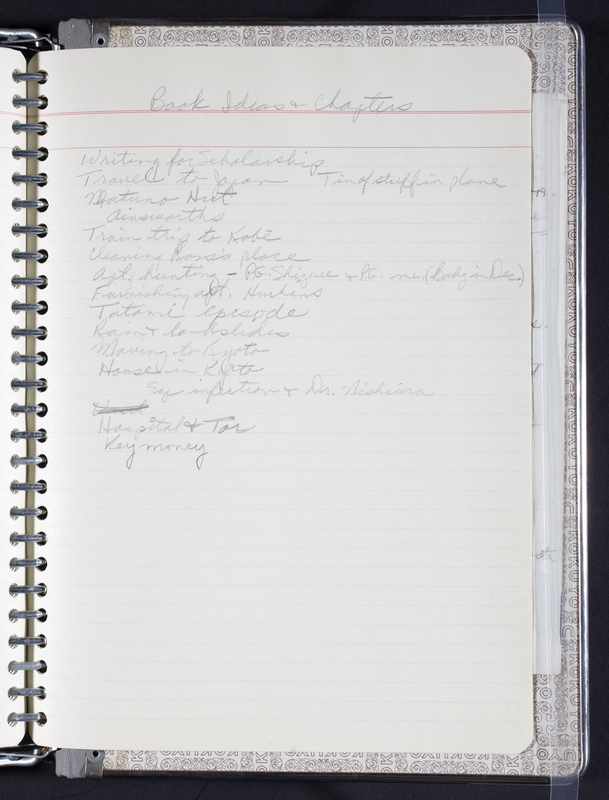 Book Ideas & Chapters
Writing for Scholarship
Travel to Japan Tin of stuff in plane
Matuno Hut
Ainsworths
Train trip to Kobē
Cleaning Ross's place
Apt. hunting - P.G. Shizue & P.G. me. (Baby in Dec)
Furnishing apt.
Tatami episode
Rain & landslides
Moving to Kyoto
House in Kyoto
Eye infection & Dr. Nishiura
Hospital & Tor
Key money
KOKUYO